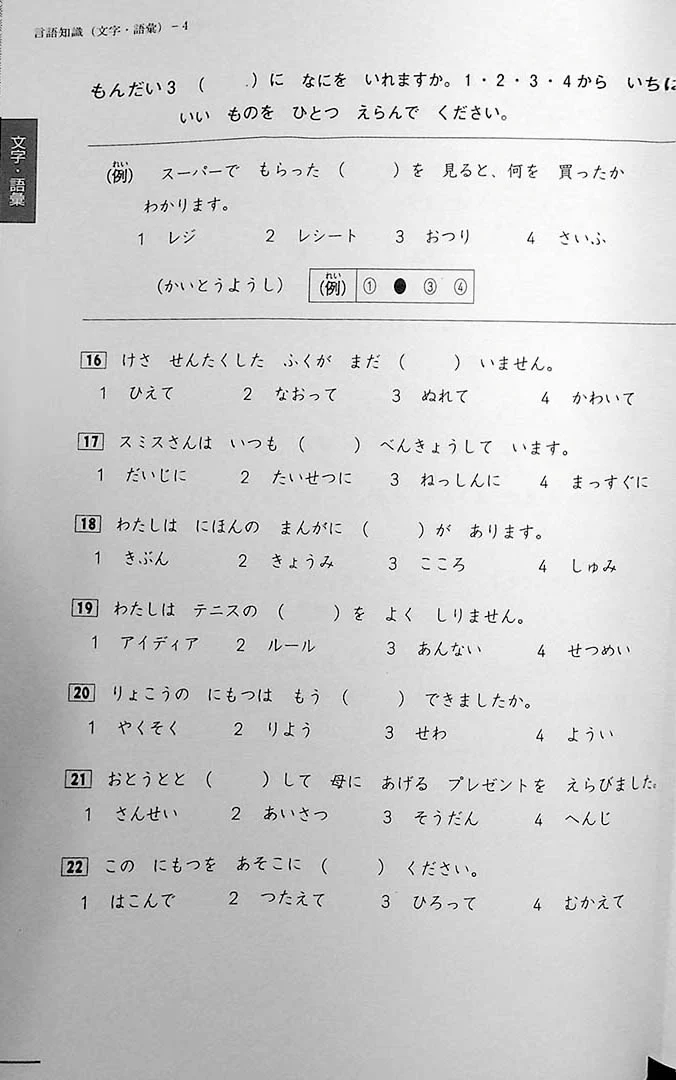 言語知識（文字・語彙）－4
文字・語彙
もんだい3 （　　）に なにを いれますか。1・2・3・4から いちばん
いい ものを ひとつ えらんで ください。
（例） スーパーで もらった （　　）を 見ると、何を 買ったか
わかります。
1 レジ 2 レシート 3 おつり 4 さいふ
（かいとうようし） （例） ① ● ③ ④
16 けさ せんたくした ふくが まだ （　　） いません。
1 ひえて 2 なおって 3 ぬれて 4 かわいて
17 スミスさんは いつも （　　） べんきょうして います。
1 だいじに 2 たいせつに 3 ねっしんに 4 まっすぐに
18 わたしは にほんの まんがに （　　）が あります。
1 きぶん 2 きょうみ 3 こころ 4 しゅみ
19 わたしは テニスの （　　）を よく しりません。
1 アイディア 2 ルール 3 あんない 4 せつめい
20 りょこうの にもつは もう （　　） できましたか。
1 やくそく 2 りよう 3 せわ 4 ようい
21 おとうとと （　　）して 母に あげる プレゼントを えらびました。
1 さんせい 2 あいさつ 3 そうだん 4 へんじ
22 この にもつを あそこに （　　） ください。
1 はこんで 2 つたえて 3 ひろって 4 むかえて